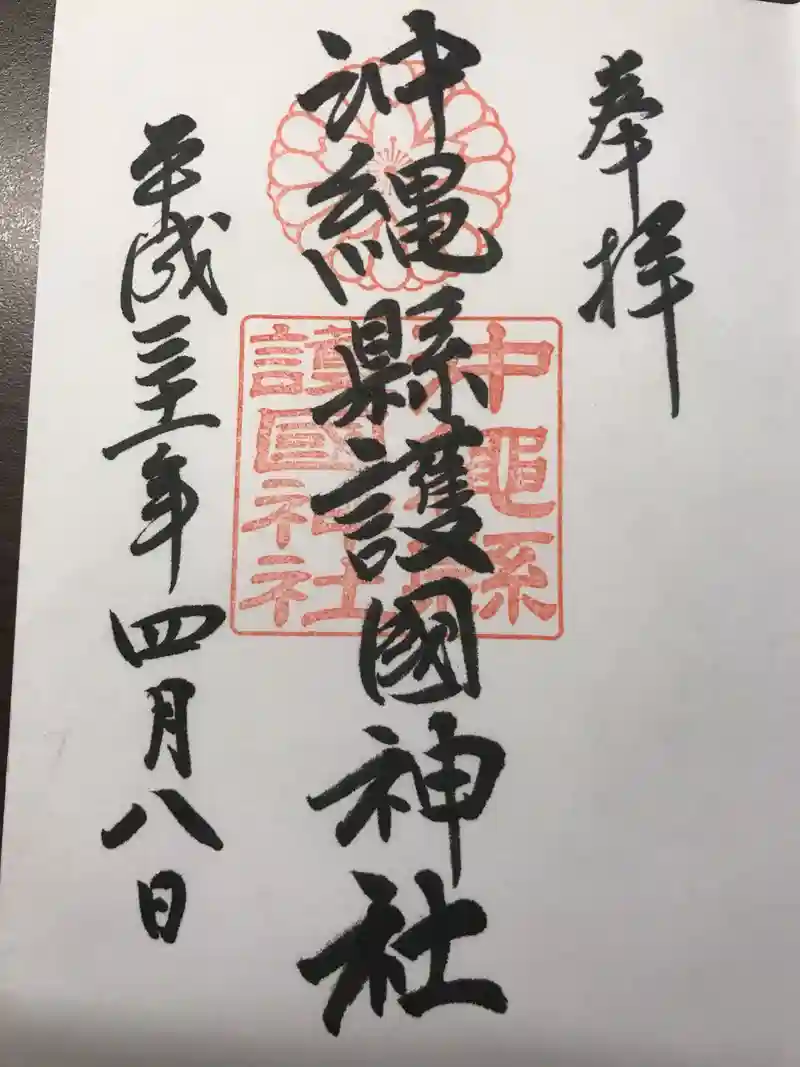 奉拝
沖縄縣護國神社
沖縄縣
護國神社
平成三十一年四月八日